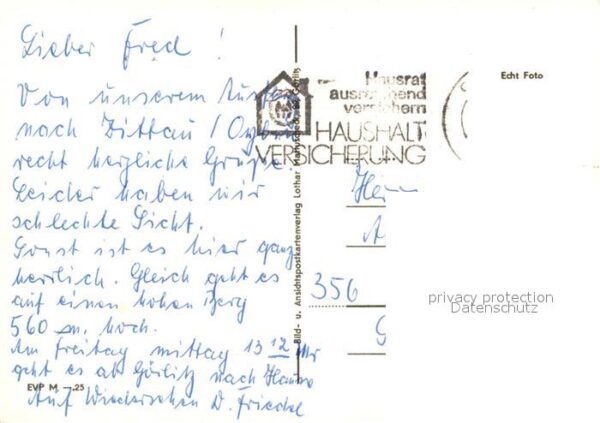 Lieber Fred !
Von unserem
nach Zittau / Oybin
recht herzliche Grüße.
Leider haben wir
schlechte Sicht.
Sonst ist es hier ganz
herrlich. Gleich geht es
auf einen hohen Berg
560 m. hoch.
Am Freitag mittag 13 12 Uhr
geht es ab Görlitz nach Hause
Auf Wiedersehen D. Friedel
EVP M —.25
Bild- u. Ansichtspostkartenverlag Lothar
Hausrat
ausreichend
versichern
HAUSHALT
VERSICHERUNG
Echt Foto
Herrn
A
356
G
privacy protection
Datenschutz